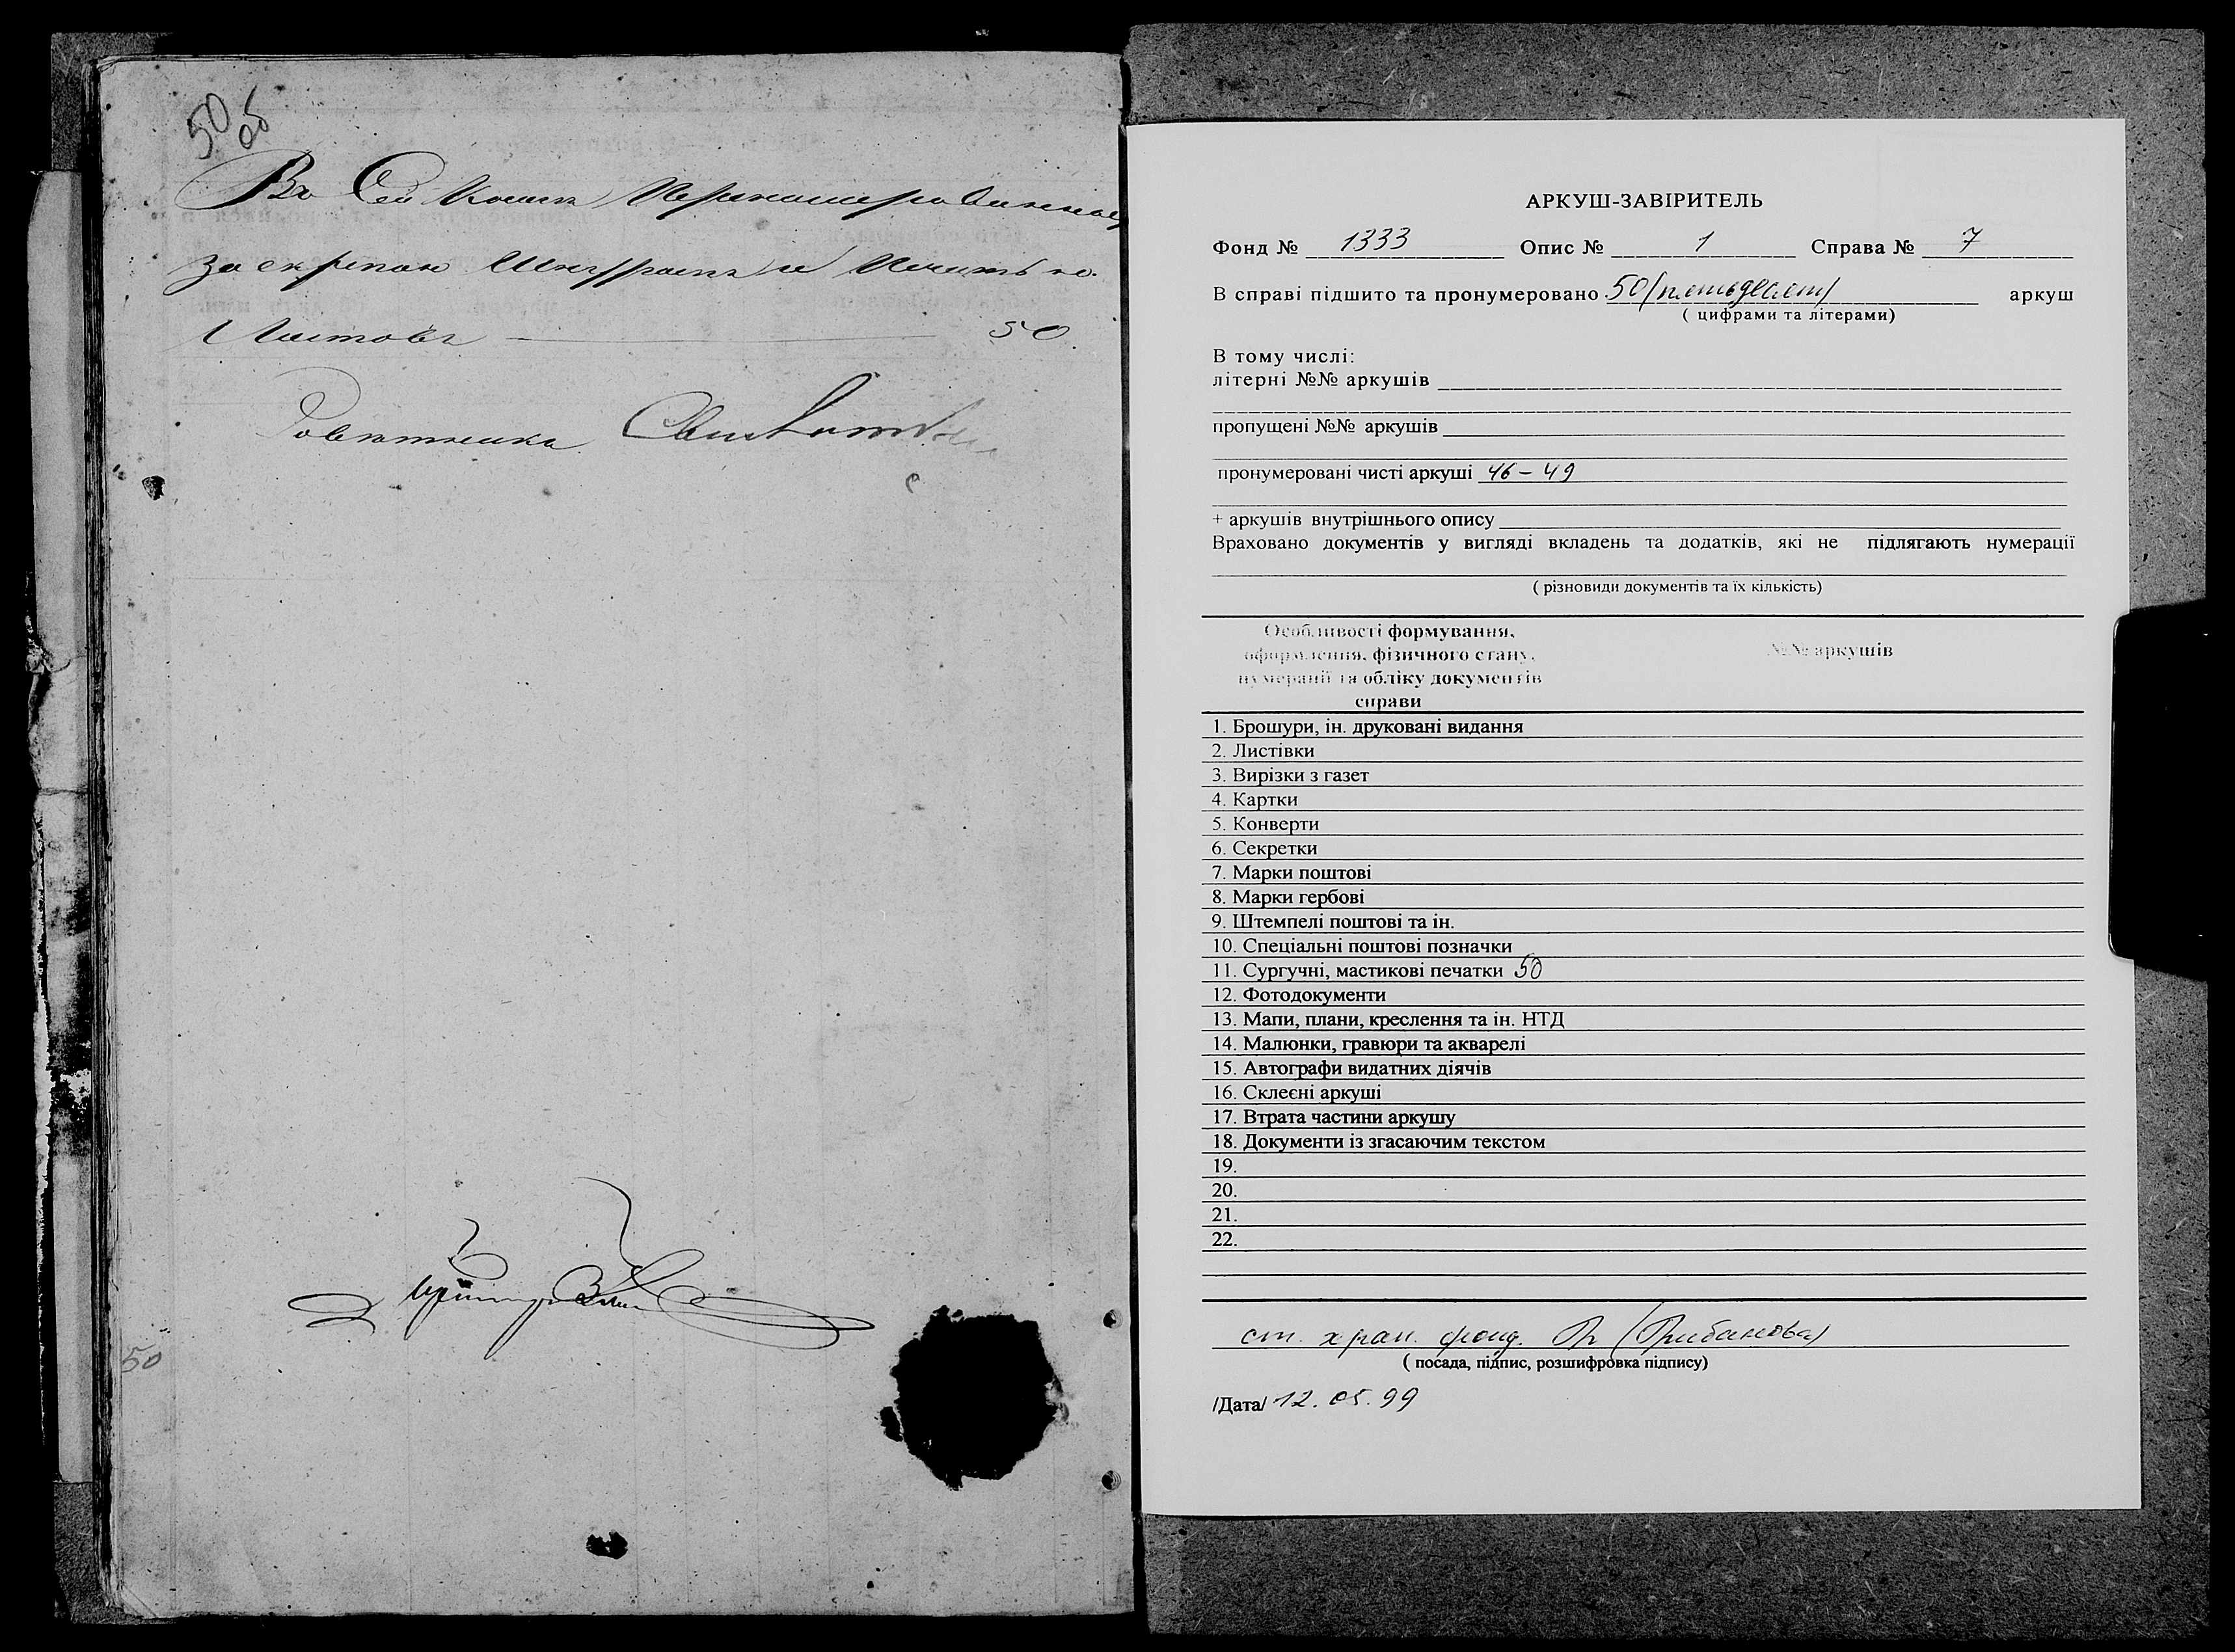 50 об
Въ Сей Книге
за
Листовъ 50.
50
АРКУШ-ЗАВІРИТЕЛЬ
Фонд № 1333 Опис № 1 Справа № 7
В справі підшито та пронумеровано 50 (пятьдесят) аркуш
( цифрами та літерами)
В тому числі:
літерні №№ аркушів
пропущені №№ аркушів
пронумеровані чисті аркуші 46 – 49
+ аркушів внутрішнього опису
Враховано документів у вигляді вкладень та додатків, які не підлягають нумерації
( різновиди документів та їх кількість)
Особливості формування, 
оформлення, фізичного стану, №№ аркушів
нумерації та обліку документів
справи
1. Брошури, ін. друковані видання
2. Листівки
3. Вирізки з газет
4. Картки
5. Конверти
6. Секретки
7. Марки поштові
8. Марки гербові
9. Штемпелі поштові та ін.
10. Спеціальні поштові позначки
11. Сургучні, мастикові печатки 50
12. Фотодокументи
13. Мапи, плани, креслення та ін. НТД
14. Малюнки, гравюри та акварелі
15. Автографи видатних діячів
16. Склеєні аркуші
17. Втрата частини аркушу
18. Документи із згасаючим текстом
19.
20.
21.
22.
ст. хран. фонд.
( посада, підпис, розшифровка підпису)
/Дата/ 12. 05. 99